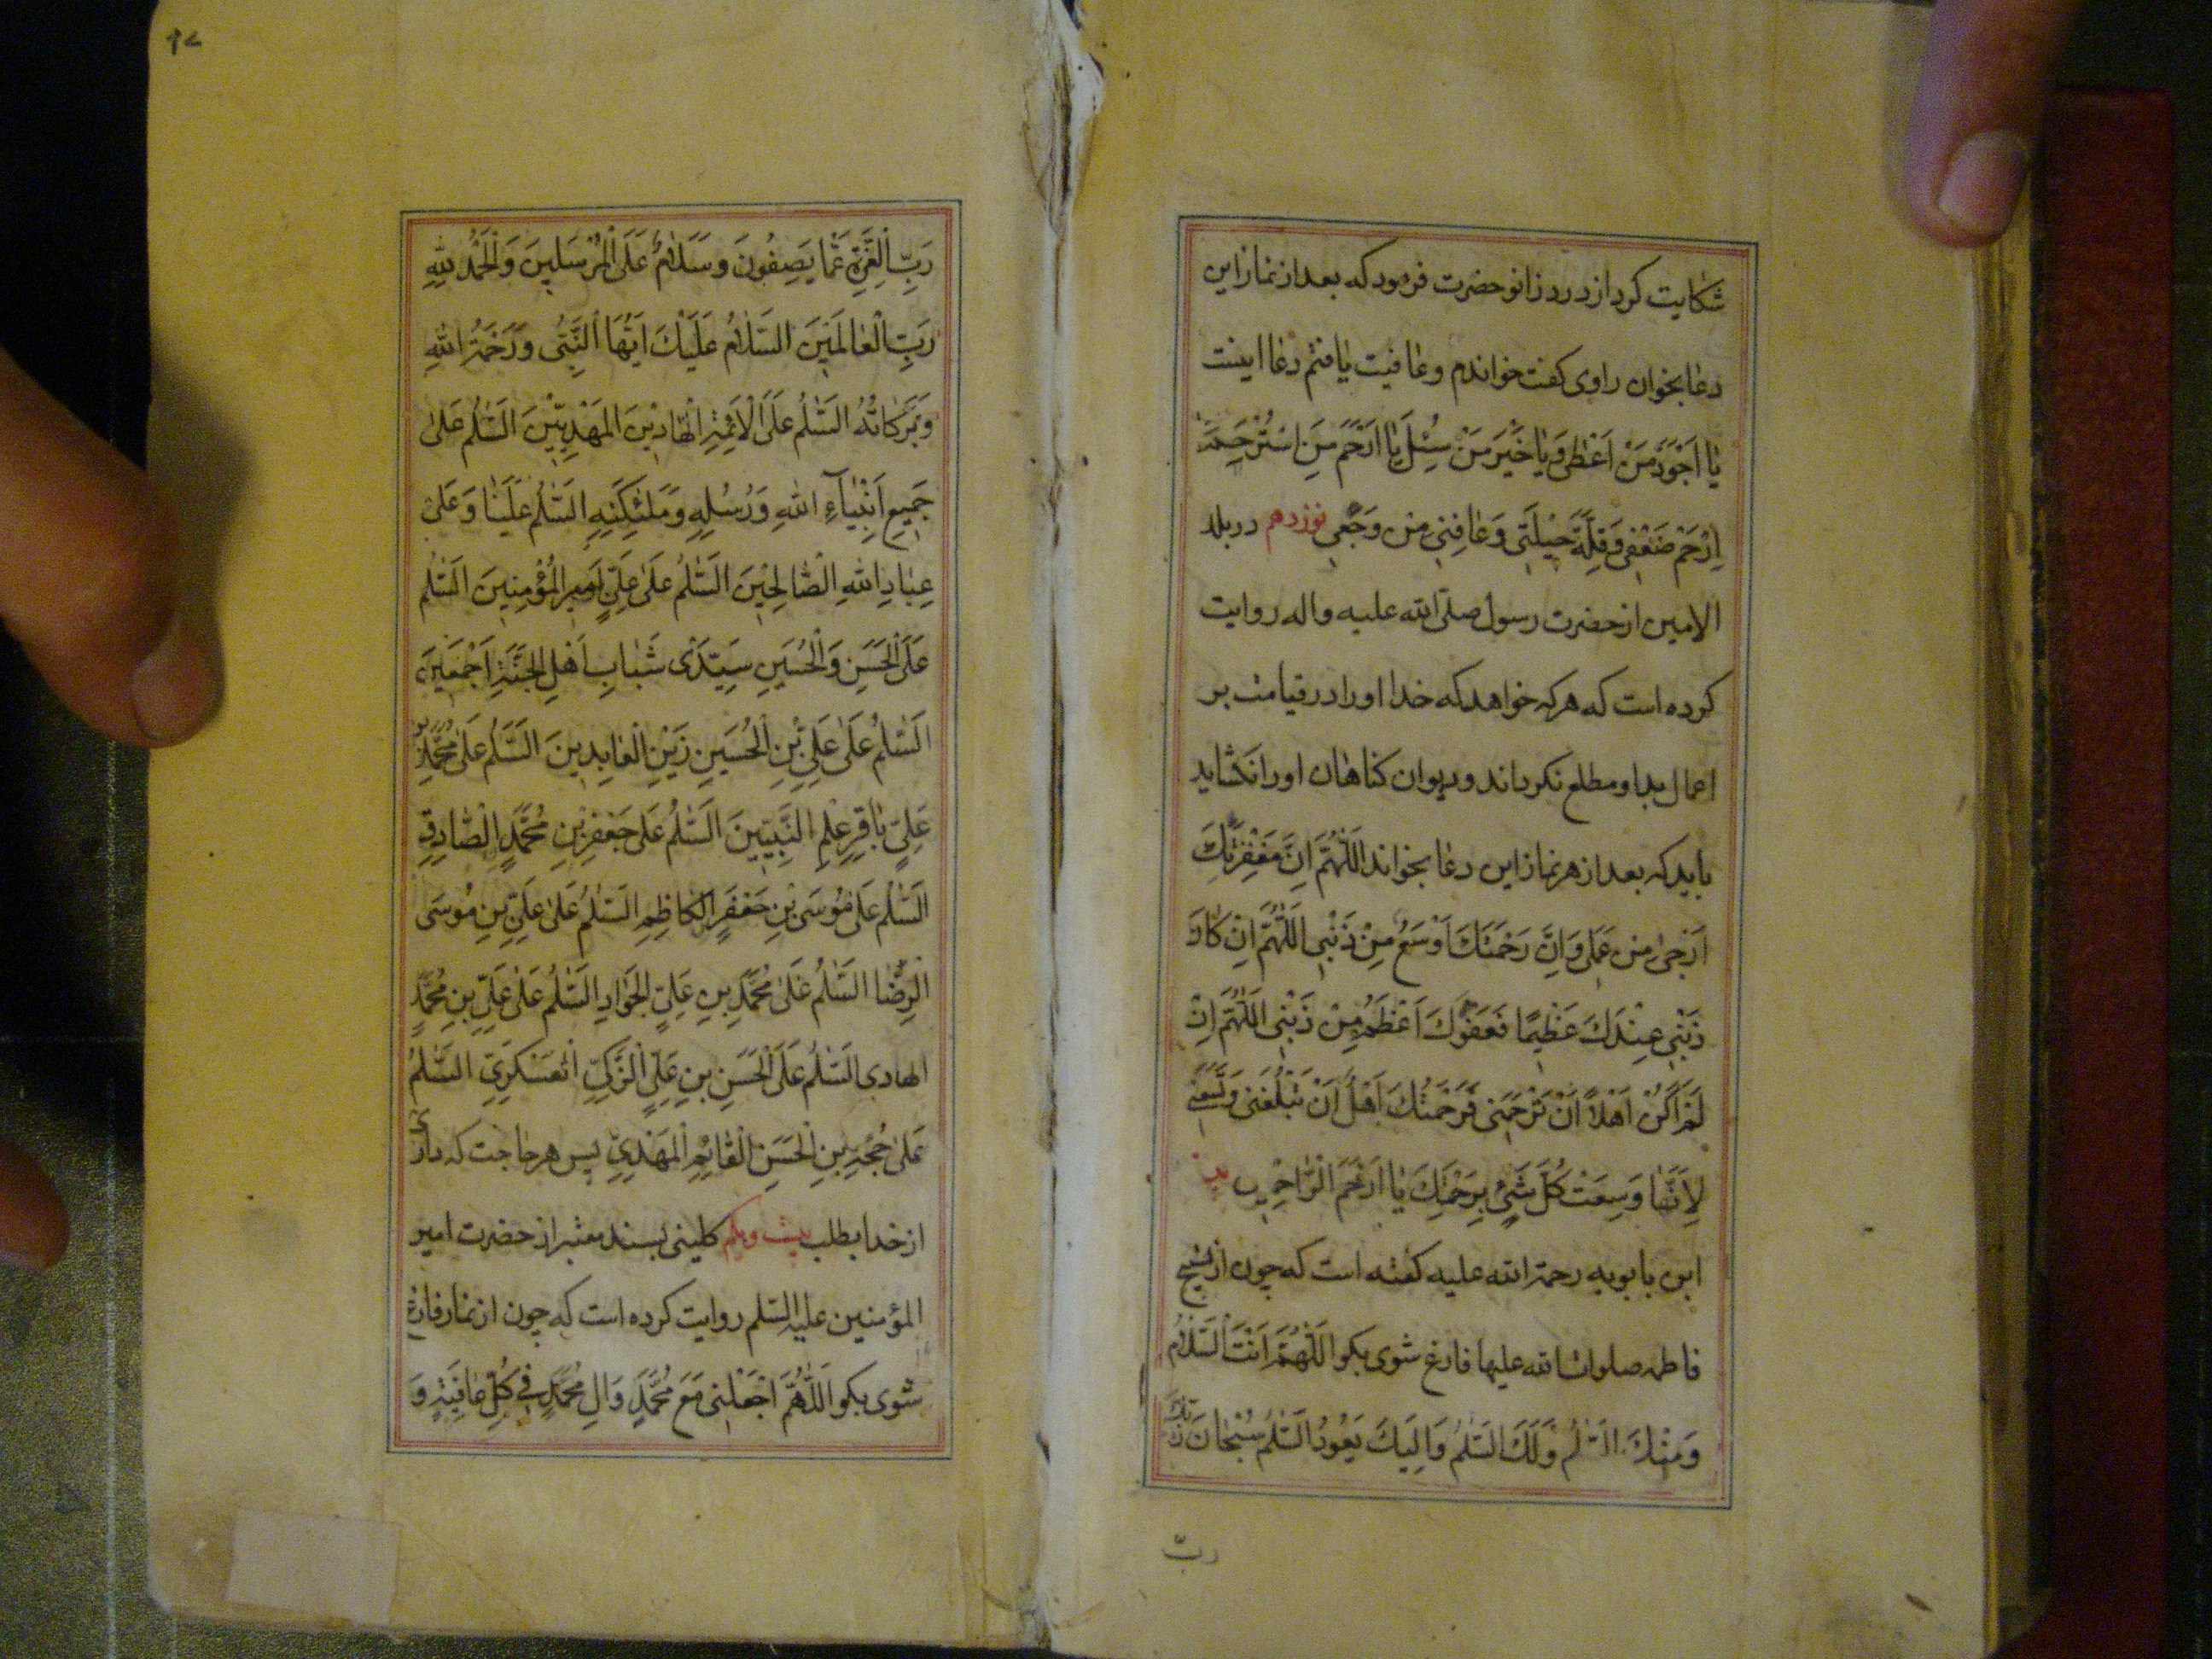 شکایت کرد از درد زانو حضرت فرمود که بعد از نماز این
دعا بخوان راوی کفت خواندم و عافیت یافتم دعا اینست
یا اَجْوَدَ مَنْ اَعْطی وَیا خَیْرَ مَنْ سُئِلَ یا اَرْحَمَ مَنِ اسْتُرْحِمَ
اِرْحَمْ ضَعْفی وَقِلَّةَ حیْلَتی وَعافِنی مِنْ وَجَعی نوزدهم در بلد
الامین از حضرت رسول صلّی الله علیه واله روایت
کرده است که هرکه خواهد که خدا او را در قیامت بر
اعمال بد او مطلع نکرداند و دیوان کناهان او را نکشاید
باید که بعد از هر نماز این دعا بخواند اَللّهُمَّ اِنَّ مَغْفِرَتَكَ
اَرْجی مِنْ عَمَلی وَاِنَّ رَحْمَتَكَ اَوْسَعُ مِنْ ذَنْبی اَللّهُمَّ اِنْ کانَ
ذَنْبی عِنْدَكَ عَظیمًا فَعَفْوُكَ اَعْظَمُ مِنْ ذَنْبی اَللّهُمَّ اِنْ
لَمْ اَکُنْ اَهْلاً اَنْ تَرْحَمَنی فَرَحْمَتُكَ اَهْلٌ اَنْ تَبْلُغَنی وَتَسَعَنی
لِاَنَّها وَسِعَتْ کُلَّ شَیْءٍ بِرَحْمَتِكَ یا اَرْحَمَ الرّاحِمین
ابن بابویه رحمة الله علیه کفته است که چون از تسبیح
فاطمه صلوات الله علیها فارغ شوی بکو اَللّهُمَّ اَنْتَ السَّلامُ
وَمِنْكَ السَّلمُ وَلَكَ السَّلمُ وَاِلَیْكَ یَعُودُ السَّلمُ سُبْحانَ رَبِّكَ
ربّ
رَبِّ الْعِزَّةِ عَمّا یَصِفُونَ وَسَلامٌ عَلَی الْمُرْسَلینَ وَالْحَمْدُ لِلّهِ
رَبِّ الْعالَمینَ السَّلامُ عَلَیْكَ اَیُّهَا النَّبِیُّ وَرَحْمَةُ اللهِ
وَبَرَکاتُهُ السَّلمُ عَلَی الْاَئِمَّةِ الْهادینَ الْمَهْدِیّینَ السَّلمُ عَلی
جَمیعِ اَنْبِیآءِ اللهِ وَرُسُلِهِ وَمَلئِکَتِهِ السَّلمُ عَلَیْنا وَعَلی
عِبادِ اللهِ الصّالِحینَ السَّلمُ عَلی عَلِیٍّ اَمیرِ الْمُؤْمِنینَ السَّلمُ
عَلَی الْحَسَنِ وَالْحُسَیْنِ سَیِّدَیْ شَبابِ اَهْلِ الْجَنَّةِ اَجْمَعینَ
السَّلمُ عَلی عَلِیِّ بْنِ الْحُسَیْنِ زَیْنِ الْعابِدینَ السَّلمُ عَلی مُحَمَّدِ بْنِ
عَلِیٍّ باقِرِ عِلْمِ النَّبِیّینَ السَّلمُ عَلی جَعْفَرِ بْنِ مُحَمَّدٍ الصّادِقِ
السَّلمُ عَلی مُوسَی بْنِ جَعْفَرٍ الْکاظِمِ السَّلمُ عَلی عَلِیِّ بْنِ مُوسَی
الرِّضا السَّلمُ عَلی مُحَمَّدِ بْنِ عَلِیٍّ الْجَوادِ السَّلمُ عَلی عَلِیِّ بْنِ مُحَمَّدٍ
الهادی السَّلمُ عَلَی الْحَسَنِ بْنِ عَلِیٍّ الزَّکِیِّ الْعَسْکَرِیِّ السَّلمُ
عَلی حُجَّةِ بْنِ الْحَسَنِ الْقائِمِ الْمَهْدِیِّ پس هر حاجت که داری
از خدا بطلب بیست ویکم کلینی بسند معتبر از حضرت امیر
المؤمنین علیه السّلم روایت کرده است که چون از نماز فارغ
شوی بکو اَللّهُمَّ اجْعَلْنی مَعَ مُحَمَّدٍ وَالِ مُحَمَّدٍ فی کُلِّ عافِیَةٍ وَ